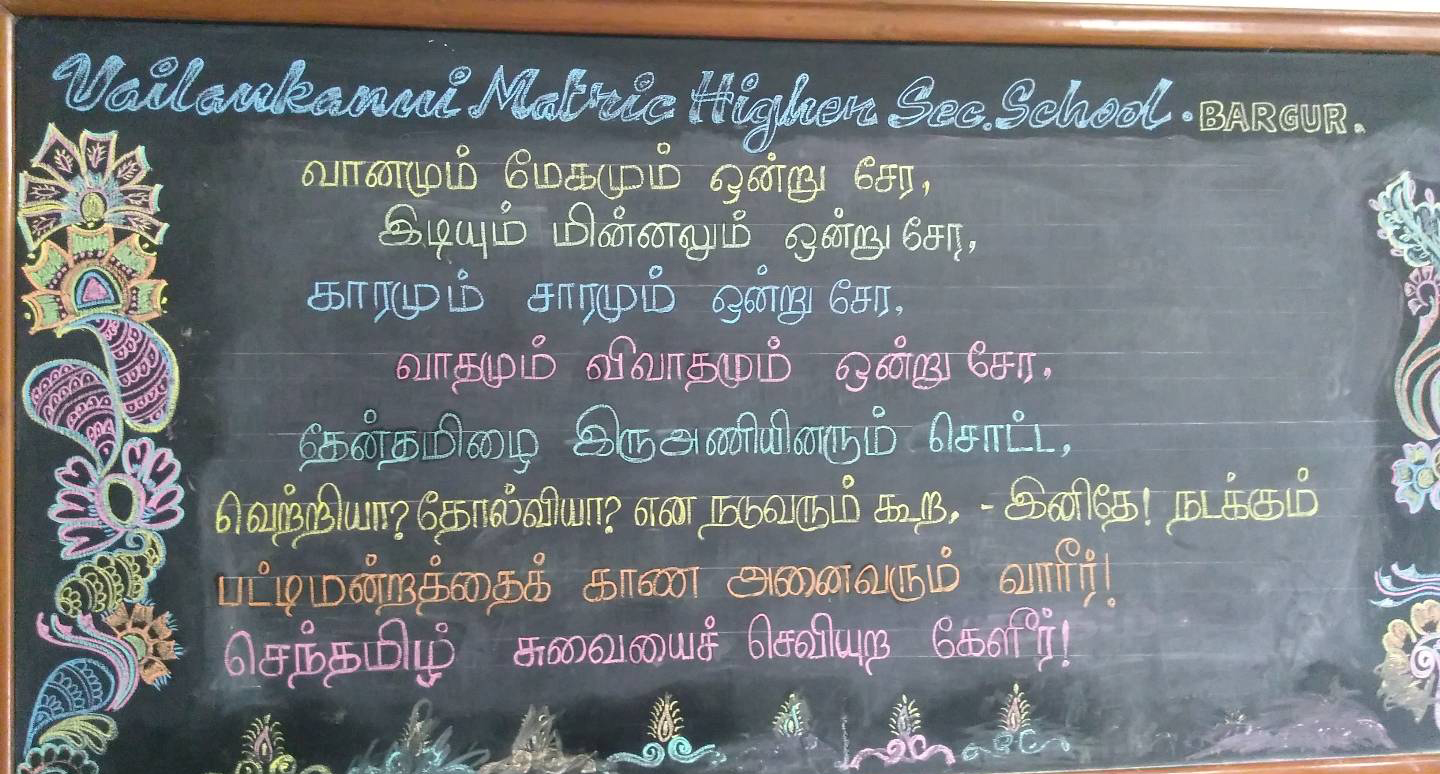 Vailankanni Matric Higher Sec. School. BARGUR.
வானமும் மேகமும் ஒன்று சேர,
இடியும் மின்னலும் ஒன்று சேர,
காரமும் சாரமும் ஒன்று சேர,
வாதமும் விவாதமும் ஒன்று சேர,
தேன்தமிழை இருஅணியினரும் சொட்ட,
வெற்றியா? தோல்வியா? என நடுவரும் கூற, - இனிதே! நடக்கும்
பட்டிமன்றத்தைக் காண அனைவரும் வாரீர்!
செந்தமிழ் சுவையைச் செவியுற கேளீர்!